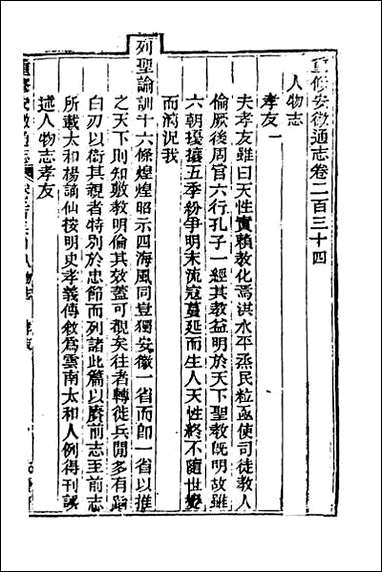 重修安徽通志卷二百三十四
人物志
孝友一
夫孝友雖曰天性實賴教化焉洪水平烝民粒亟使司徒教人
倫厥後周官六行孔子一經其教益明於天下聖教既明故雖
六朝擾攘五季紛爭明末流寇蔓延而生人天性終不隨世變
而淆況我
列聖諭訓十六條煌煌昭示四海風同豈獨安徽一省而即一省以推
之天下則知敦教明倫其效蓋可觀矣往者轉徙兵間多有蹈
白刃以衛其親者特別於忠節而列諸此篇以賡前志至前志
所載太和楊黼仙按明史孝義傳敘為雲南太和人例得刊誤
述人物志孝友